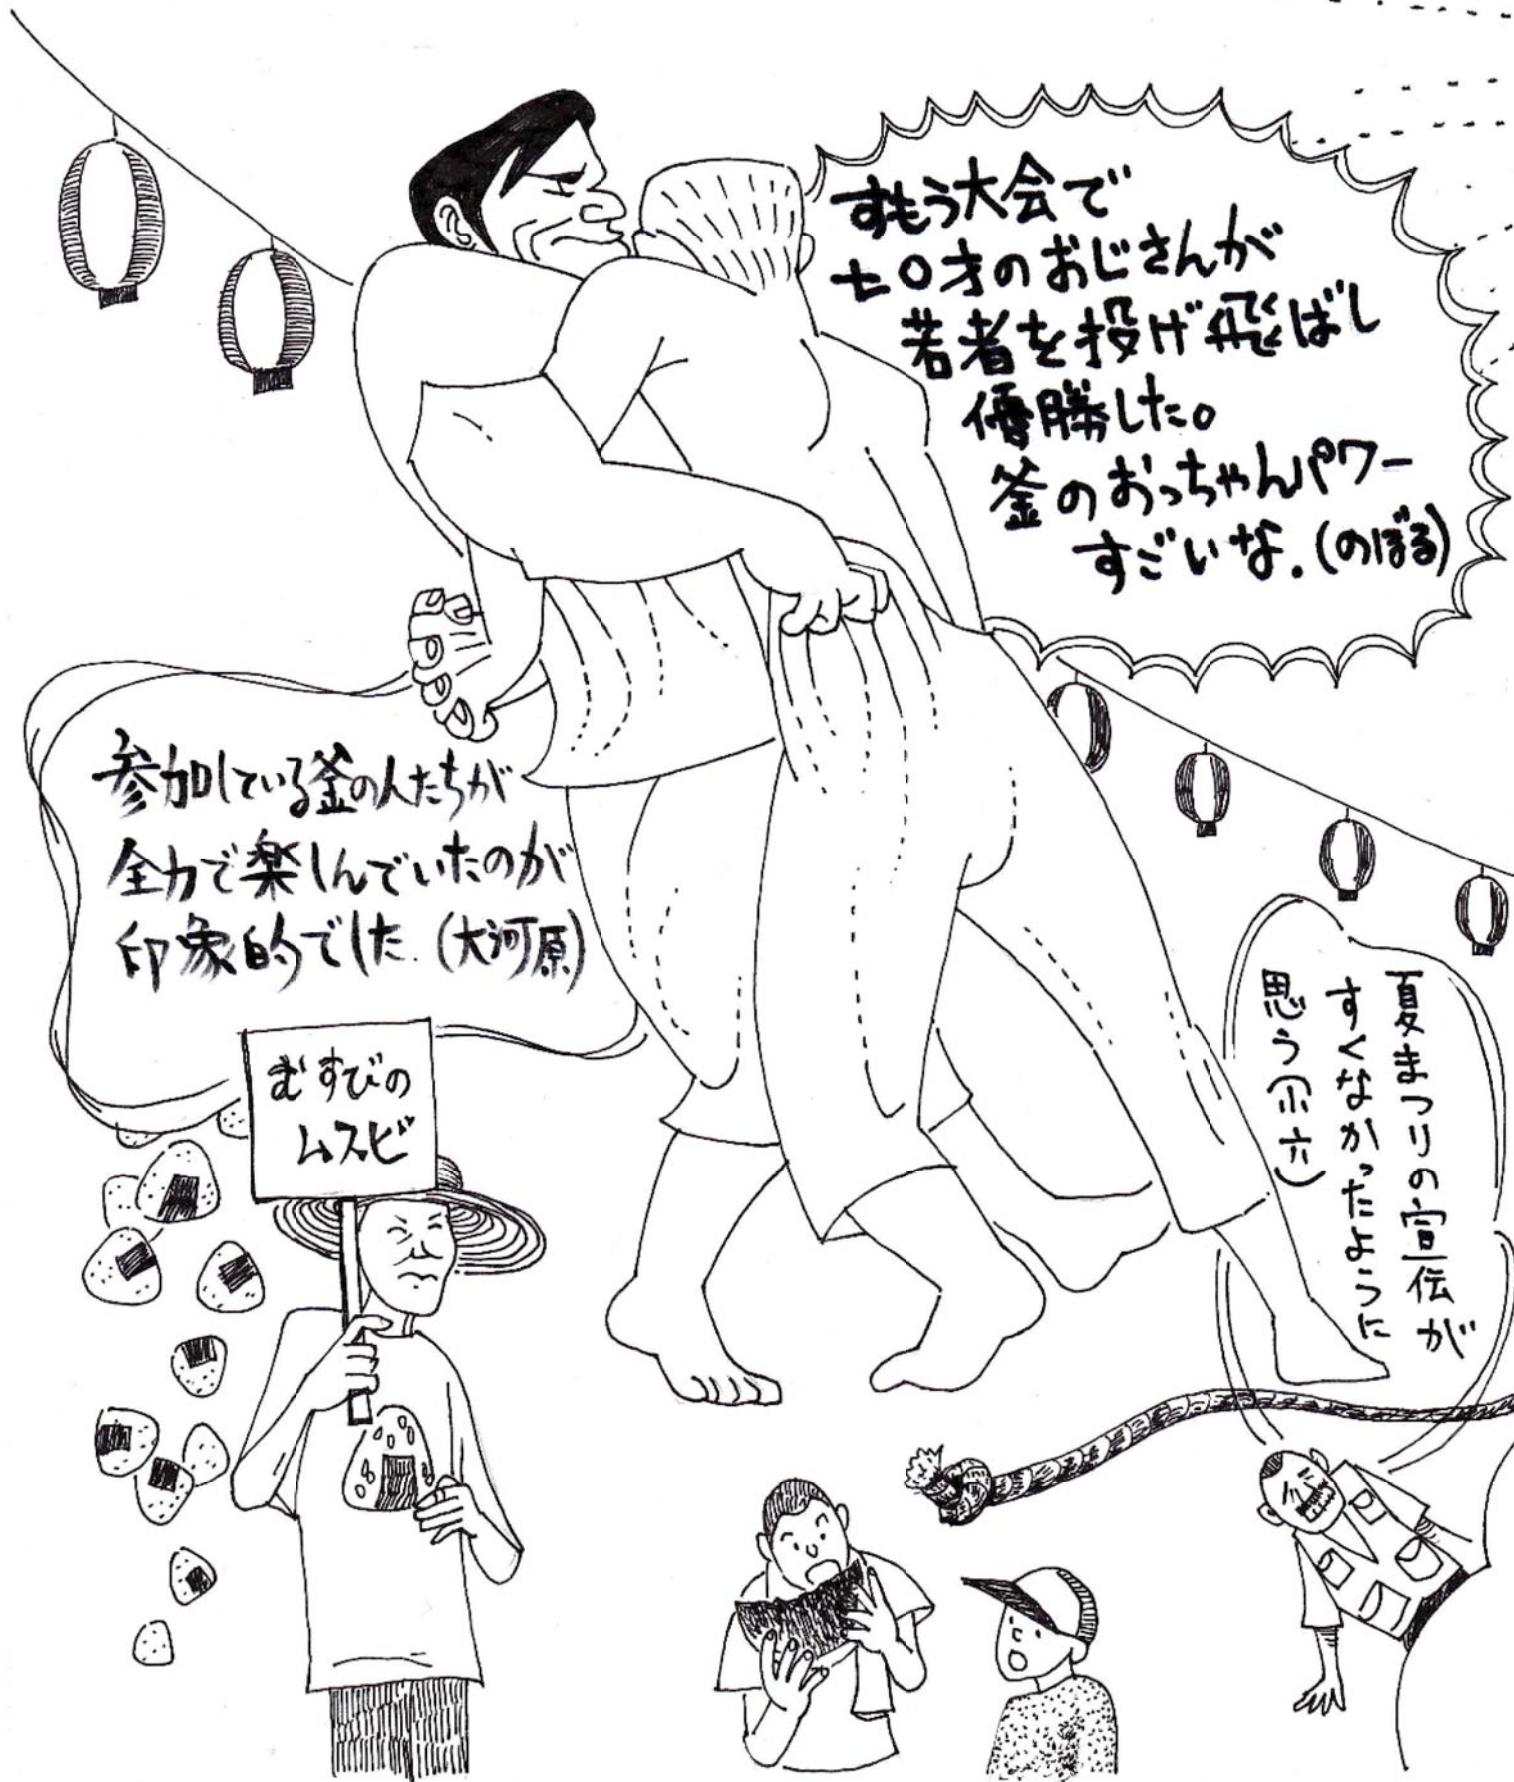 すもう大会で
七〇才のおじさんが
若者を投げ飛ばし
優勝した。
釜のおっちゃんパワー
すごいな.(のぼる)
参加している釜の人たちが
全力で楽しんでいたのが
印象的でした.(大河原)
夏まつりの宣伝が
すくなかったように
思う(小六)
むすびの
ムスビ